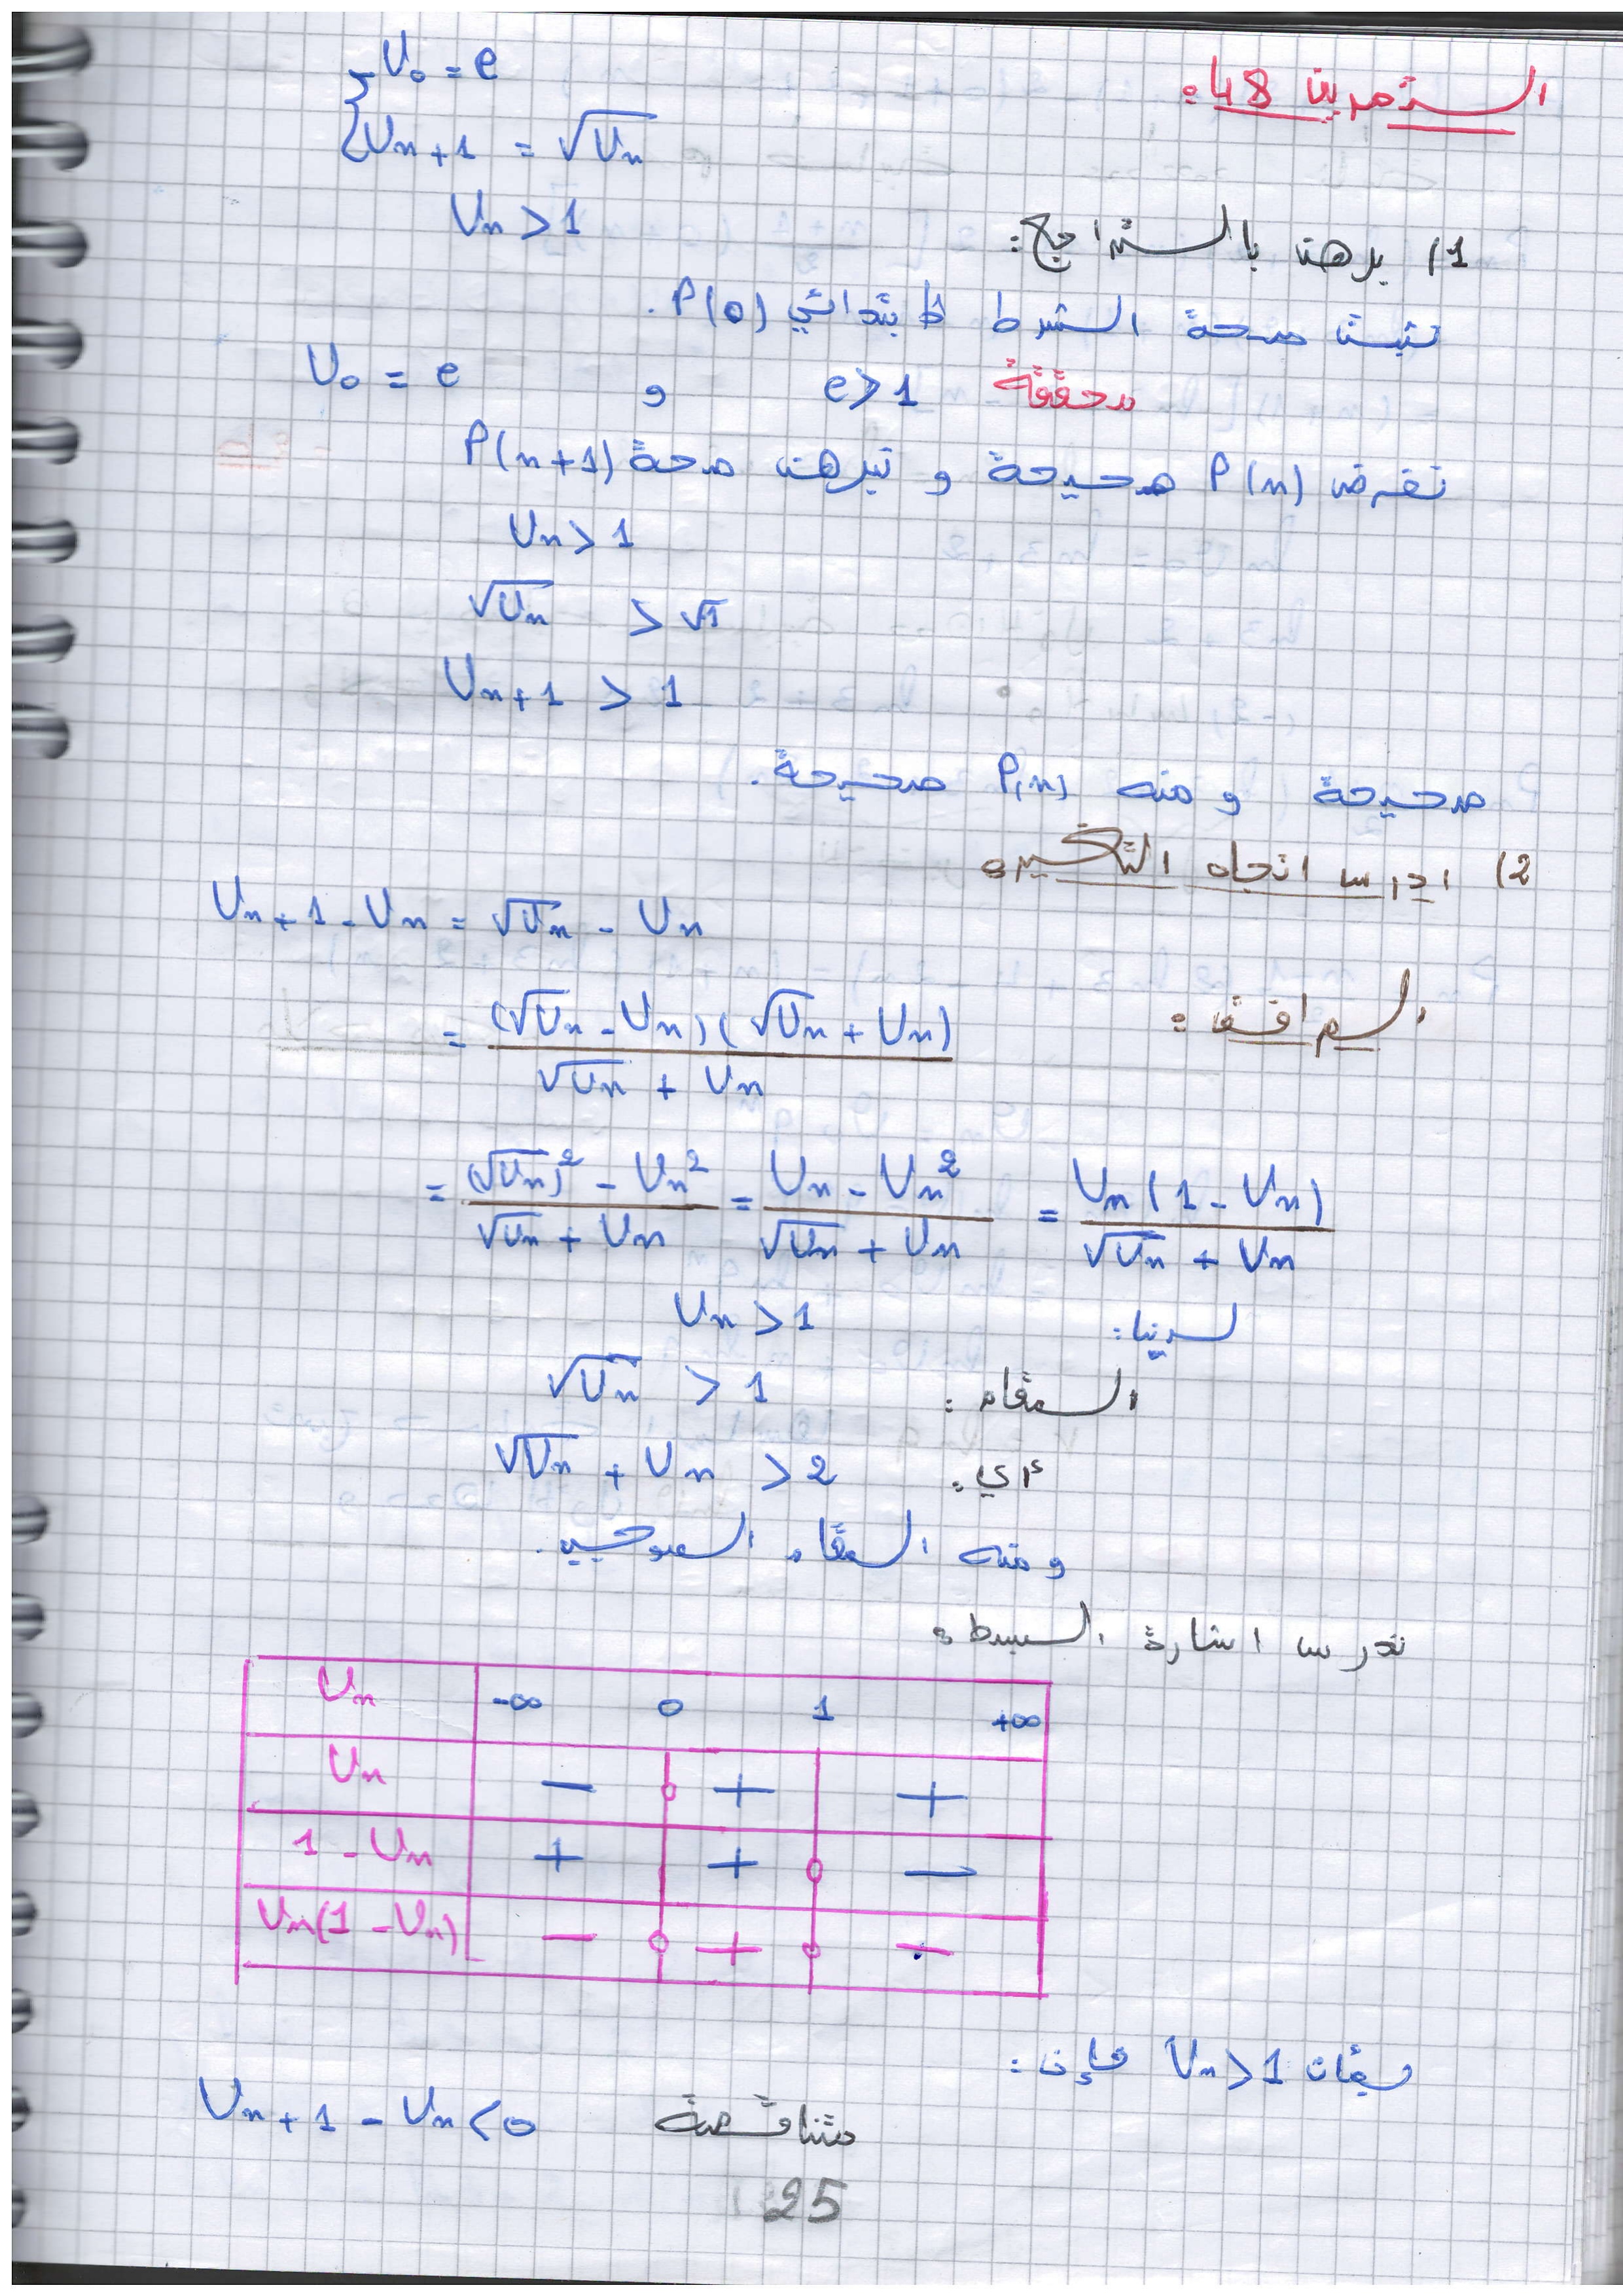 التمرين 48:
U₀ = e
Uₙ₊₁ = √Uₙ
1) برهن بالتراجع: Uₙ > 1
نثبت صحة الشرط الابتدائي P(0).
U₀ = e و e > 1 محققة
نفرض P(n) صحيحة و نبرهن صحة P(n+1)
Uₙ > 1
√Uₙ > √1
Uₙ₊₁ > 1
صحيحة و منه P(n) صحيحة.
2) ادرس اتجاه التغير:
Uₙ₊₁ - Uₙ = √Uₙ - Uₙ
المرافق:
= (√Uₙ - Uₙ)(√Uₙ + Uₙ) / √Uₙ + Uₙ
= (√Uₙ)² - Uₙ² / √Uₙ + Uₙ = Uₙ - Uₙ² / √Uₙ + Uₙ = Uₙ(1 - Uₙ) / √Uₙ + Uₙ
لدينا: Uₙ > 1
المقام: √Uₙ > 1
أي: √Uₙ + Uₙ > 2
و منه المقام موجب.
ندرس اشارة البسط:
Uₙ -∞ 0 1 +∞
Uₙ − 0 + +
1 - Uₙ + + 0 −
Uₙ(1 - Uₙ) − 0 + 0 −
بمأن Uₙ > 1 فإن:
Uₙ₊₁ - Uₙ < 0 متناقصة
25